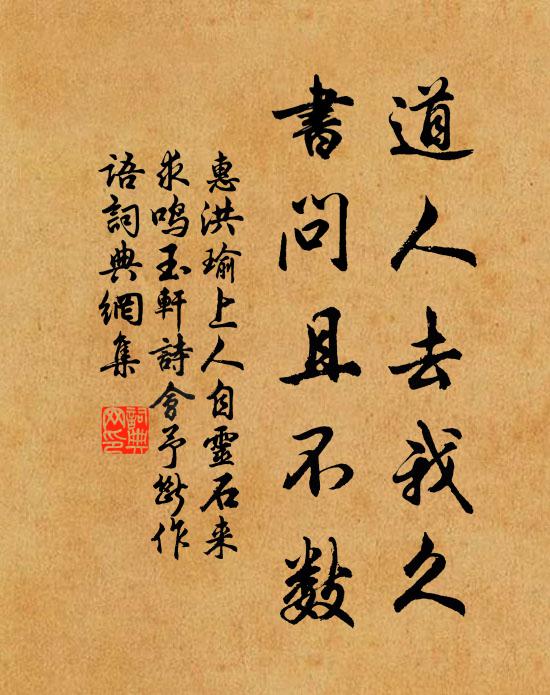 道人去我久
書問且不數
惠洪瑜上人自靈石来
求鳴玉軒詩會予斷作
語詞典網集
詞典网印